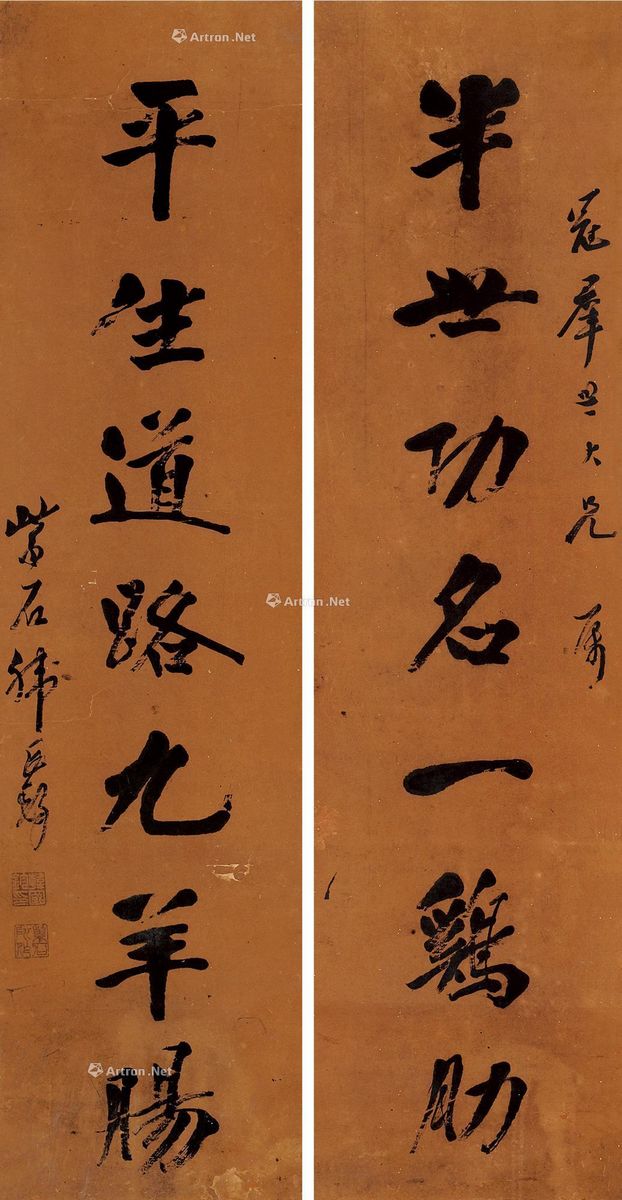 Artron.Net
Artron.Net
冠羣世大兄 属
半世功名一鷄肋
平生道路九羊腸
紫石韓國鈞
Artron.Net